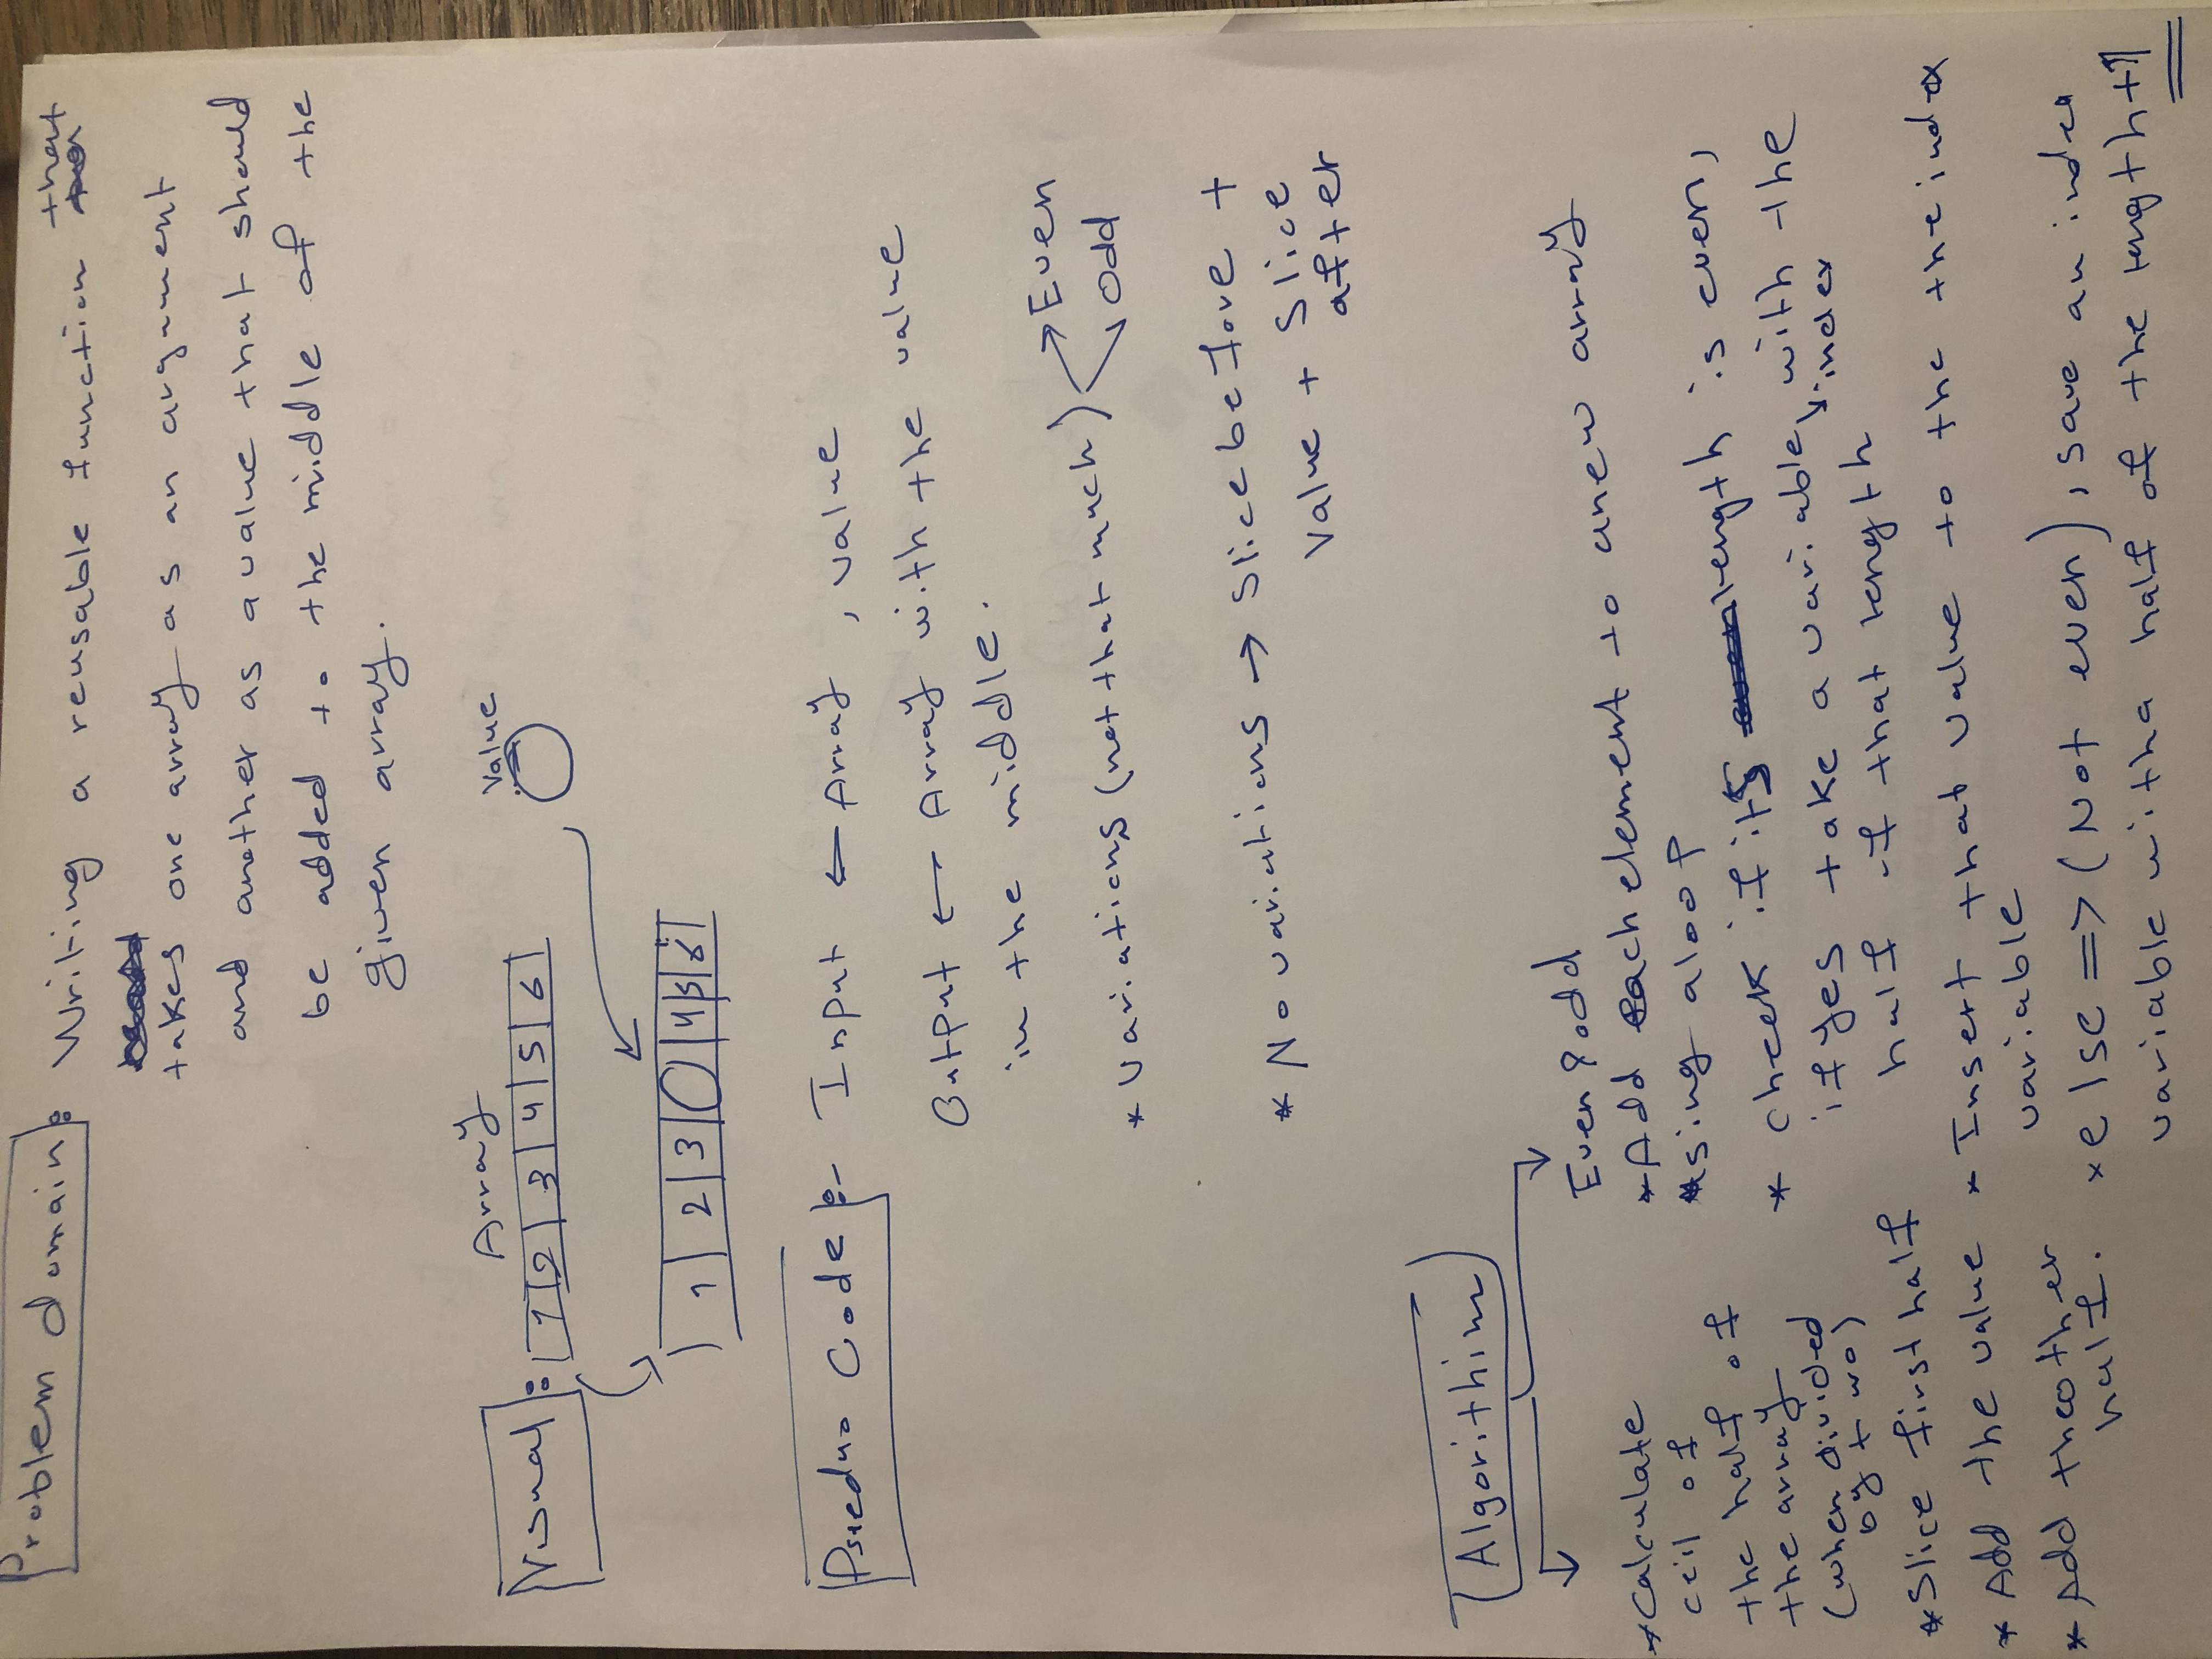 Problem domain: Writing a reusable function that
takes one array as an argument
and another as a value that should
be added to the middle of the
given array.
Array
Value
Visual: 1 2 3 4 5 6
1 2 3 4 5 6
Psieduo Code:- Input ← Array, value
Output ← Array with the value
in the middle.
* Variations (not that much) → Even
→ Odd
* No variations → Slice before +
Value + Slice
after
Algorithim
* Calculate
ceil of
the half of
the array
(when divided
by two)
* Slice first half
* Add the value
* Add the other
half.
Even & odd
* Add each element to a new array
* using a loop
* check if its length is even,
if yes take a variable, with the
index
half of that length
* Insert that value to the the index
variable
* else => (Not even), save an index
variable with a half of the length +1